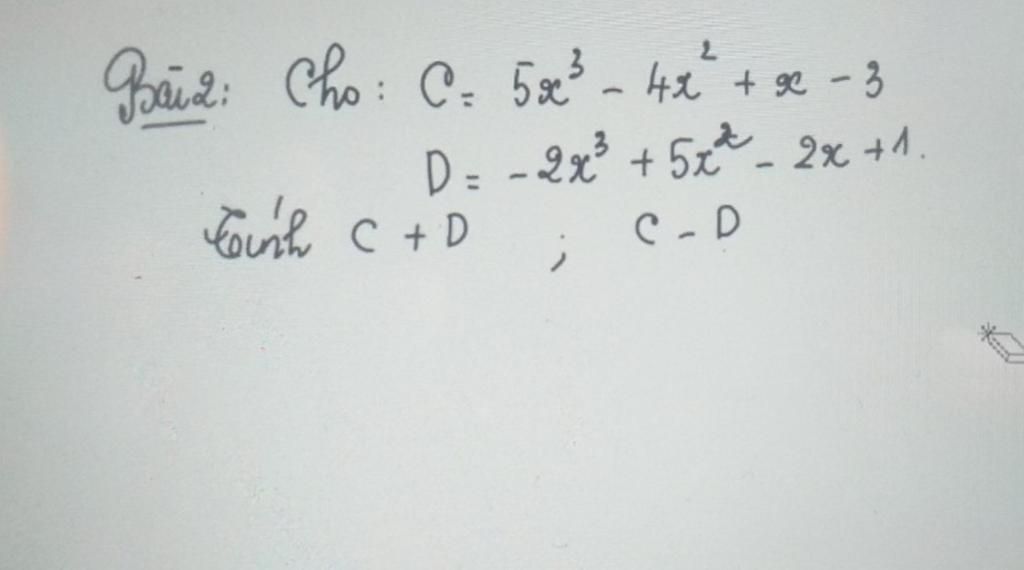 Bài 2: Cho: C = 5x³ - 4x² + x - 3
D = -2x³ + 5x² - 2x + 1.
Tính C + D ; C - D